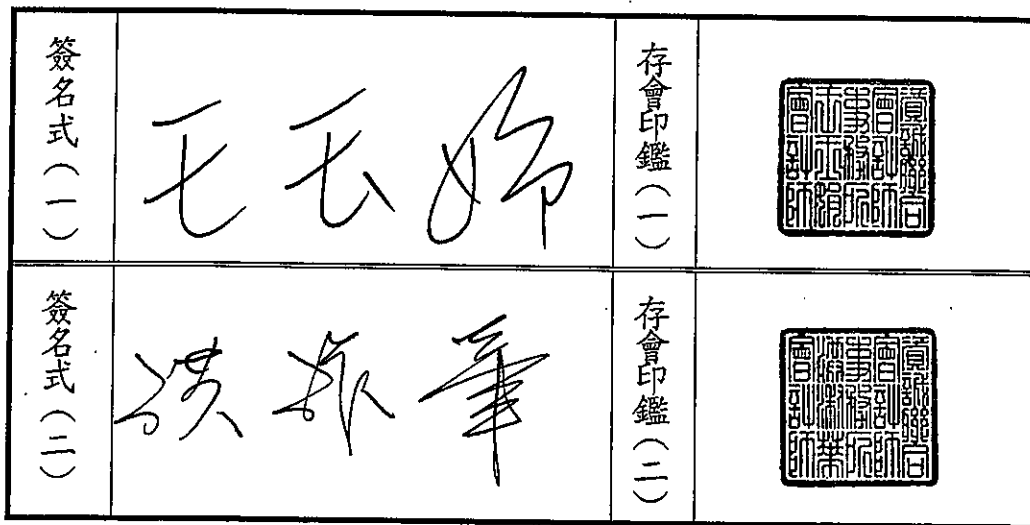 簽名式(一)
王玉娟
存會印鑑(一)
資誠聯合
會計師
事務所
王玉娟
會計師
簽名式(二)
洪淑華
存會印鑑(二)
資誠聯合
會計師
事務所
洪淑華
會計師